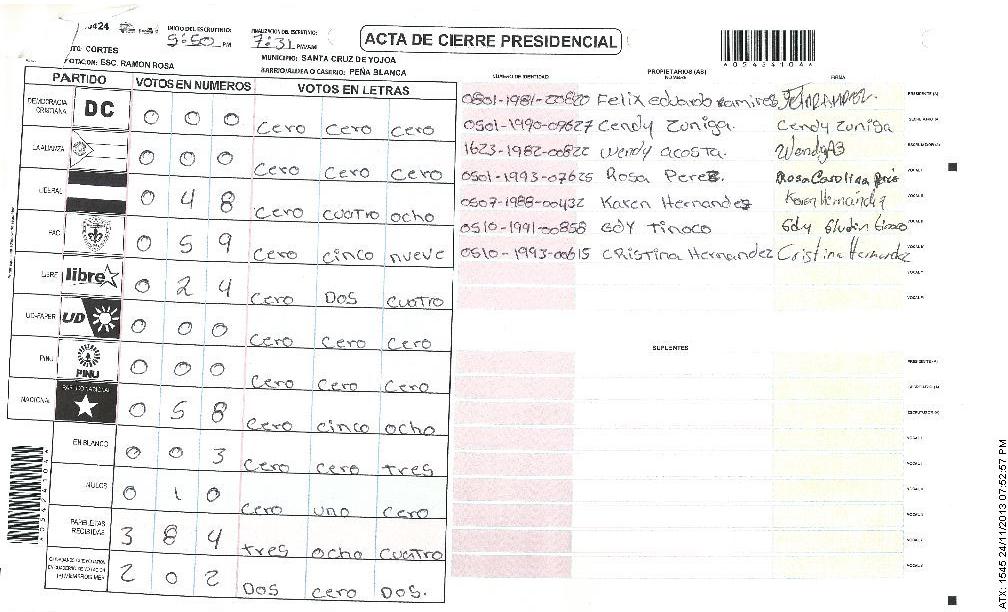 INICIO DEL ESCRUTINIO: 5:50 PM
FINALIZACION DEL ESCRUTINIO: 7:31 PM/AM
ACTA DE CIERRE PRESIDENCIAL
CORTES
MUNICIPIO: SANTA CRUZ DE YOJOA
VOTACION: ESC. RAMON ROSA
BARRIO/ALDEA O CASERIO: PEÑA BLANCA
PARTIDO VOTOS EN NUMEROS VOTOS EN LETRAS
DEMOCRACIA CRISTIANA DC 0 0 0 Cero Cero Cero
LA ALIANZA 0 0 0 Cero Cero Cero
LIBERAL 0 4 8 Cero cuatro ocho
PAC 0 5 9 Cero cinco nueve
LIBRE libre 0 2 4 Cero DOS cuatro
UD-FAPER UD 0 0 0 Cero Cero Cero
PINU PINU 0 0 0 Cero Cero Cero
NACIONAL PARTIDO NACIONAL 0 5 8 Cero cinco ocho
EN BLANCO 0 0 3 Cero cero tres
NULOS 0 1 0 Cero uno cero
PAPELETAS RECIBIDAS 3 8 4 tres ocho cuatro
2 0 2 DOS cero DOS.
NUMERO DE IDENTIDAD
PROPIETARIOS (AS)
NOMBRE
FIRMA
0501-1981-00820 Felix eduardo Ramires PRESIDENTE (A)
0501-1990-09627 Cendy Zuniga. Cendy Zuniga SECRETARIO (A)
1623-1982-00822 Wendy acosta. ESCRUTADOR (A)
0501-1993-07625 Rosa Perez. Rosa Carolina VOCAL I
0507-1988-00432 Karen Hernandez Karen Hernández VOCAL II
0510-1991-00858 EDY Tinoco VOCAL III
0510-1993-00615 CRistina Hernandez Cristina Hernandez VOCAL IV
VOCAL V
VOCAL VI
SUPLENTES
PRESIDENTE (A)
SECRETARIO (A)
ESCRUTADOR (A)
VOCAL I
VOCAL II
VOCAL III
VOCAL IV
VOCAL V
VOCAL VI
ATX: 1545 24/11/2013 07:52:57 PM